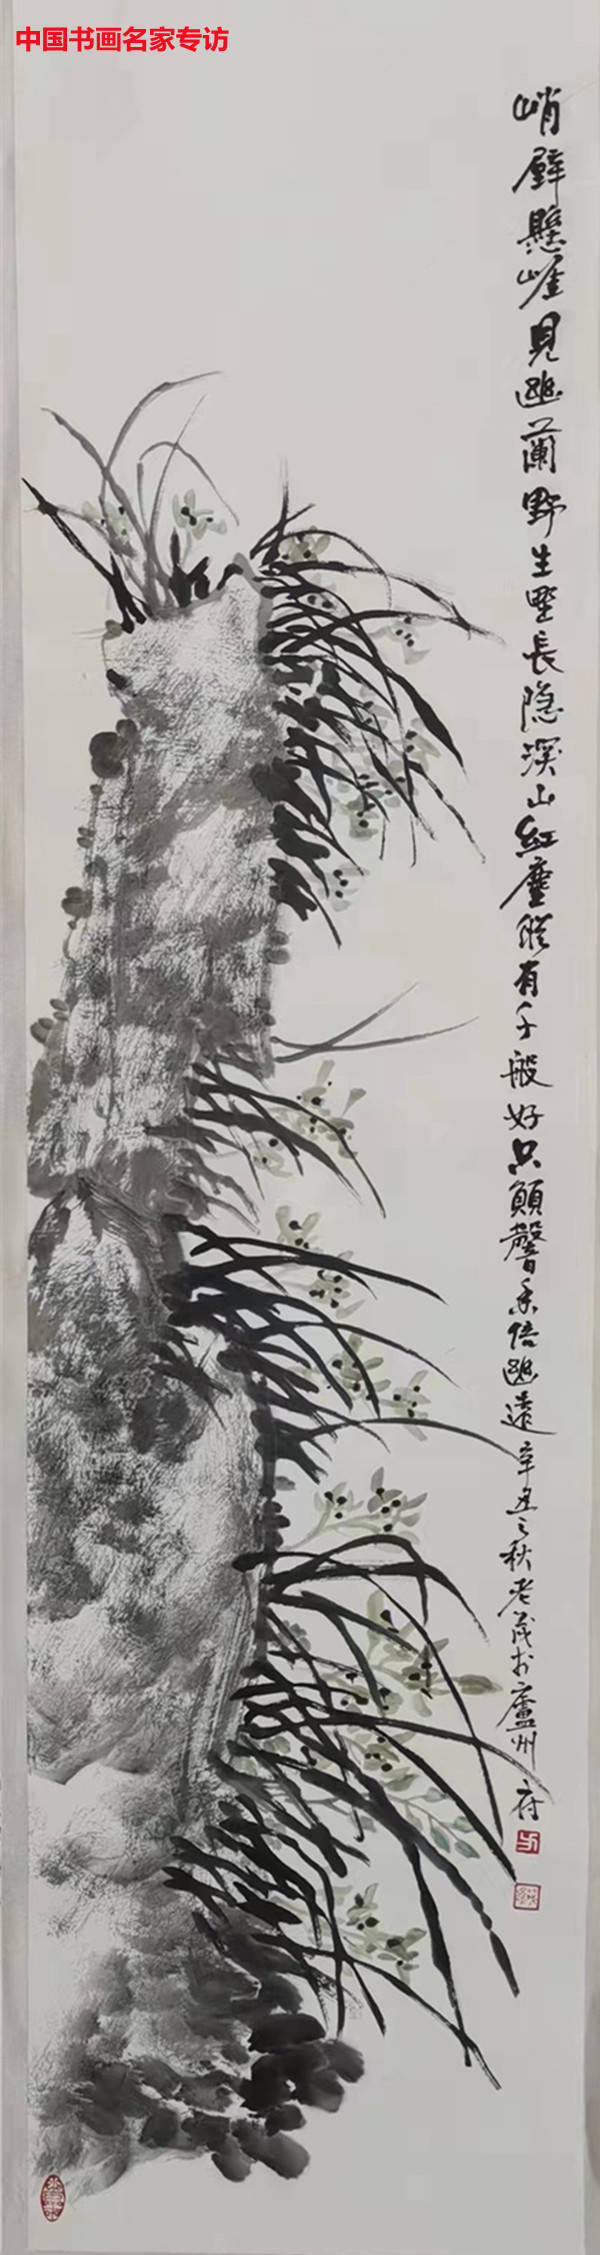 中国书画名家专访
峭壁懸崖見幽蘭野生野長隐深山紅塵縱有千般好只願馨香倍幽遠辛丑之秋老茂於廬州府